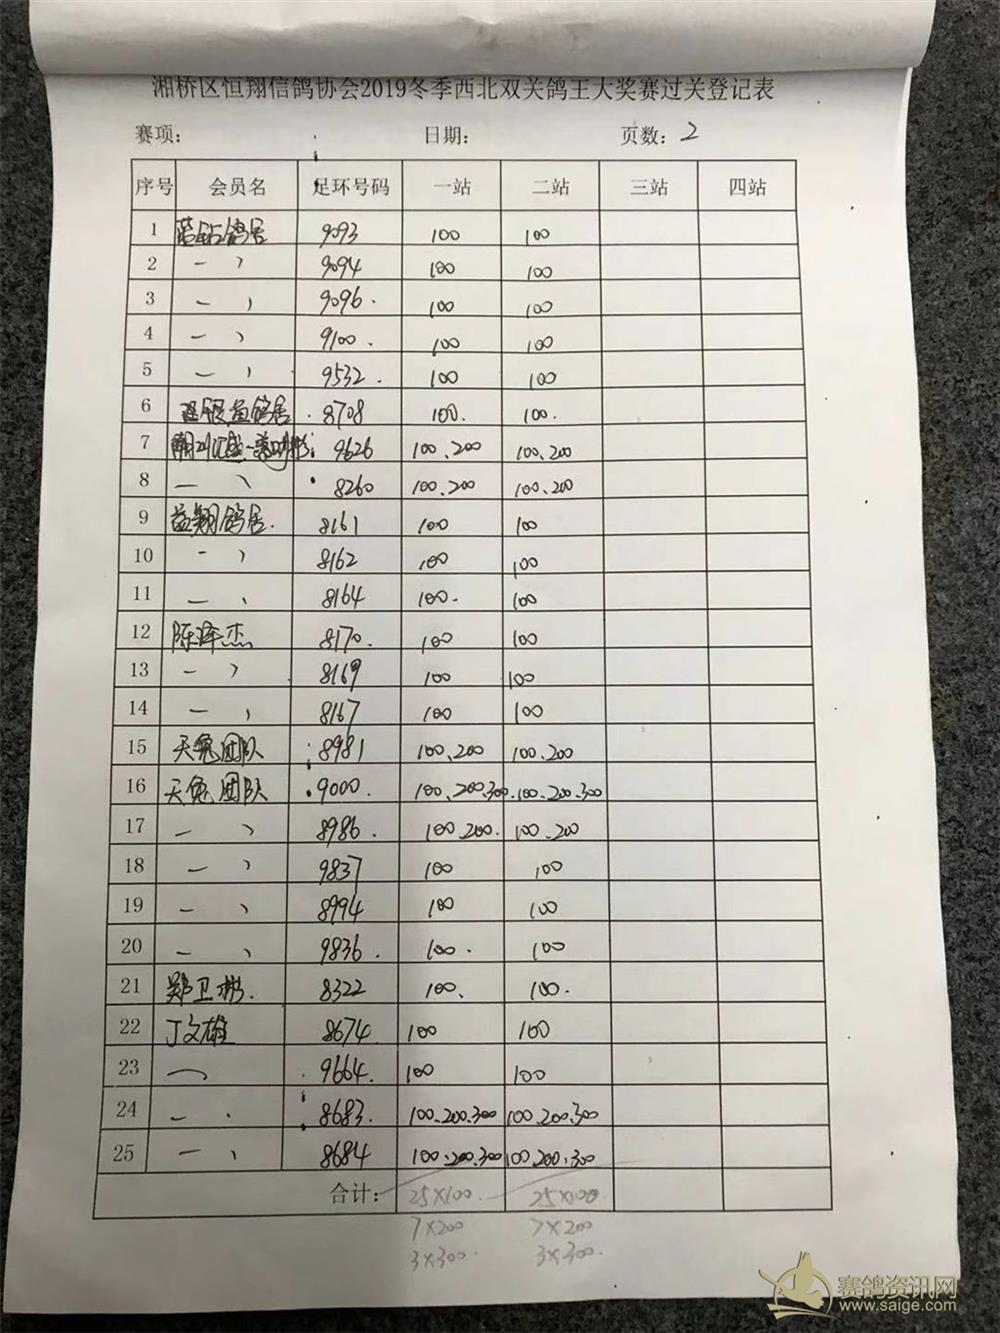 湘桥区恒翔信鸽协会2019冬季西北双关鸽王大奖赛过关登记表
赛项: 日期: 页数: 2
序号 会员名 足环号码 一站 二站 三站 四站
1 蓝钻鸽居 9093 100 100
2 一 , 9094 100 100
3 一 , 9096. 100 100
4 一 , 9100. 100 100
5 一 , 9532. 100 100
6 鸽居 8708 100. 100.
7 9626 100、200 100、200
8 一 、 8260 100、200 100、200
9 益翔鸽居. 8161 100 100
10 一 , 8162 100 100
11 一 、 8164 100. 100
12 陈泽杰 8170. 100 100
13 一 , 8169 100 100
14 一 , 8167 100 100
15 天兔团队 8981 100、200 100、200
16 天兔团队 9000. 100、200、300. 100、200、300
17 一 、 8986. 100、200. 100、200
18 一 , 9837 100 100
19 一 、 8994 100 100
20 一 、 9836. 100. 100
21 郑卫彬. 8322 100. 100.
22 丁文雄 8674. 100 100
23 一 9664. 100 100
24 一 、 8683. 100、200、300 100、200、300
25 一 、 8684 100、200、300 100、200、300
合计: 25×100. 25×100
7×200 7×200
3×300. 3×300.
赛鸽资讯网
www.saige.com